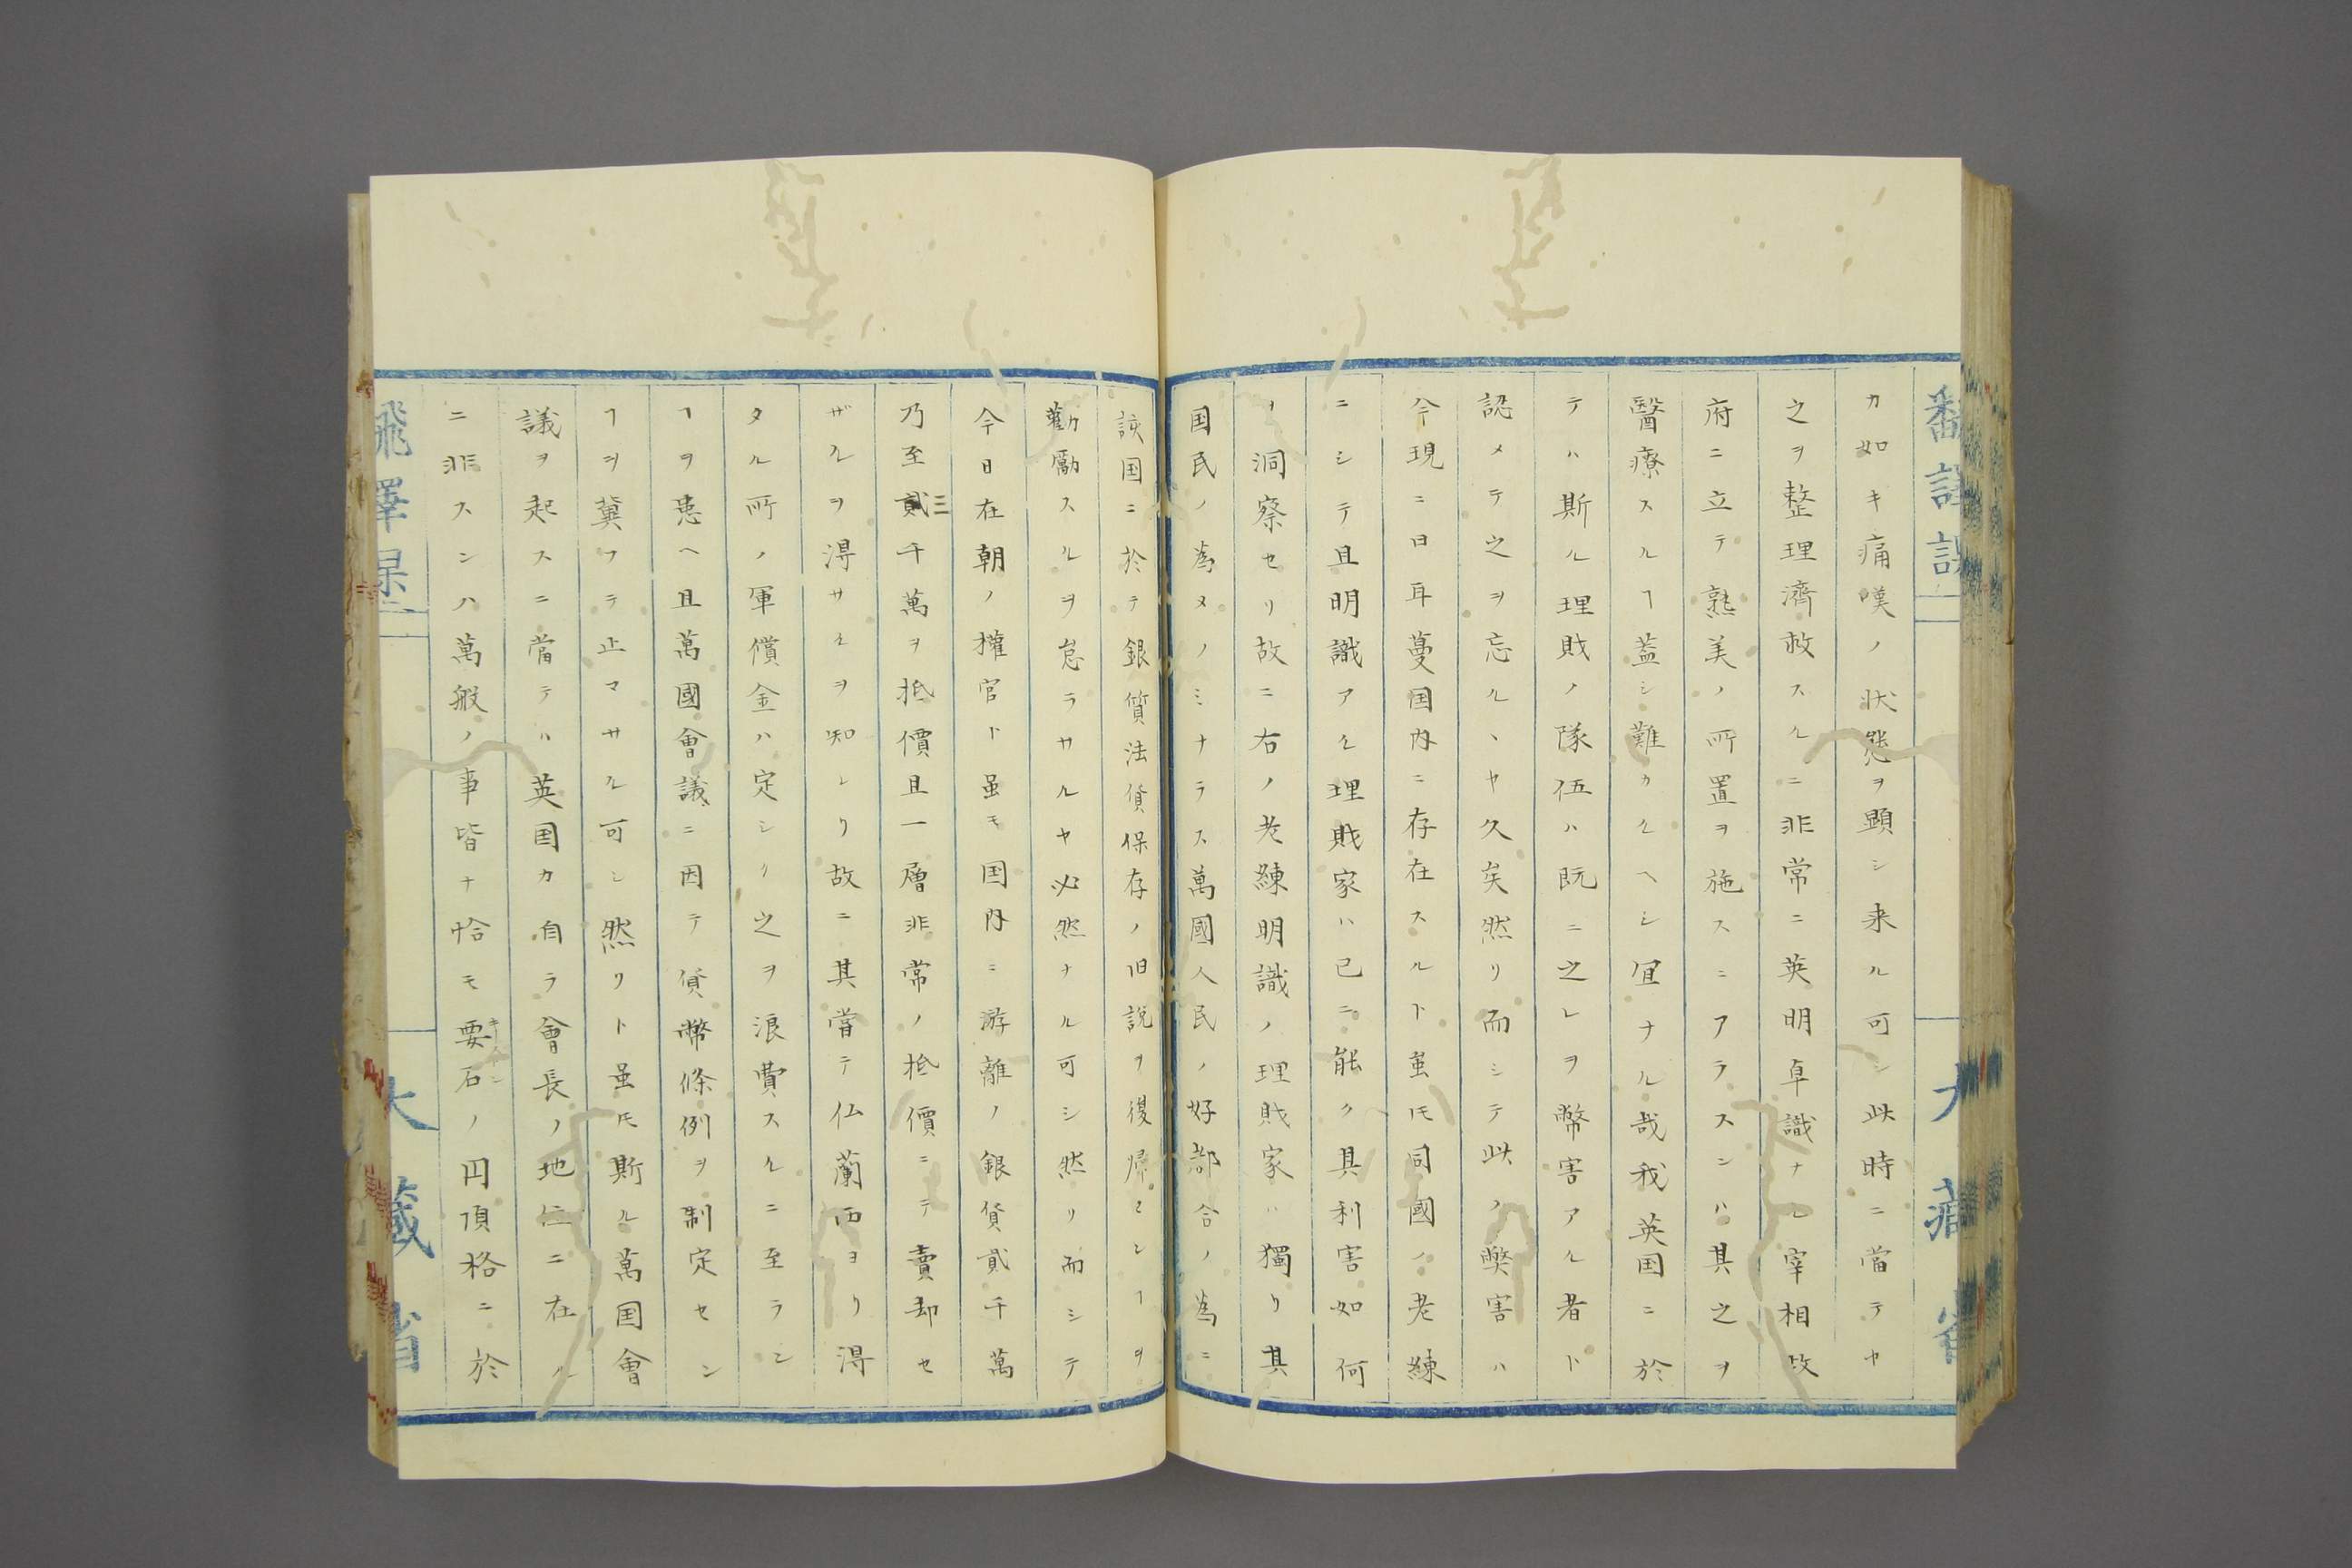 カ如キ痛嘆ノ状態ヲ顕シ来ル可シ此時ニ當テヤ
之ヲ整理濟救スルニ非常ニ英明卓識ナル宰相政
府ニ立テ熟美ノ所置ヲ施スニアラスンハ其之ヲ
醫療スルヿ蓋シ難カルヘシ宜ナル哉我英国ニ於
テハ斯ル理財ノ隊伍ハ既ニ之レヲ幣害アル者ト
認メテ之ヲ忘ルヽヤ久矣然リ而シテ此ノ弊害ハ
今現ニ日耳蔓国内ニ存在スルト虽𪜈同國ノ老練
ニシテ且明識アル理財家ハ已ニ能ク具利害如何
ヲ洞察セリ故ニ右ノ老練明識ノ理財家ハ獨リ其
国民ノ為メノミナラス萬國人民ノ好都合ノ為ニ
該国ニ於テ銀質法貨保存ノ旧説ヲ復帰センヿヲ
勸勵スルヲ怠ラサルヤ必然ナル可シ然リ而シテ
今日在朝ノ權官ト虽モ国内ニ游離ノ銀貨貮千萬
乃至三千萬ヲ抵價且一層非常ノ抵價ニテ賣却セ
ザルヲ得サルヲ知レリ故ニ其嘗テ仏蘭西ヨリ得
タル所ノ軍償金ハ定シク之ヲ浪費スルニ至ラン
ヿヲ患ヘ且萬國會議ニ因テ貨幣條例ヲ制定セン
ヿヲ冀フテ止マサル可シ然リト虽𪜈斯ル萬国會
議ヲ起スニ當テハ英国カ自ラ會長ノ地位ニ在ル
ニ非スンハ萬般ノ事皆ナ恰モ要石ノ円頂格ニ於
飜譯課
大藏省